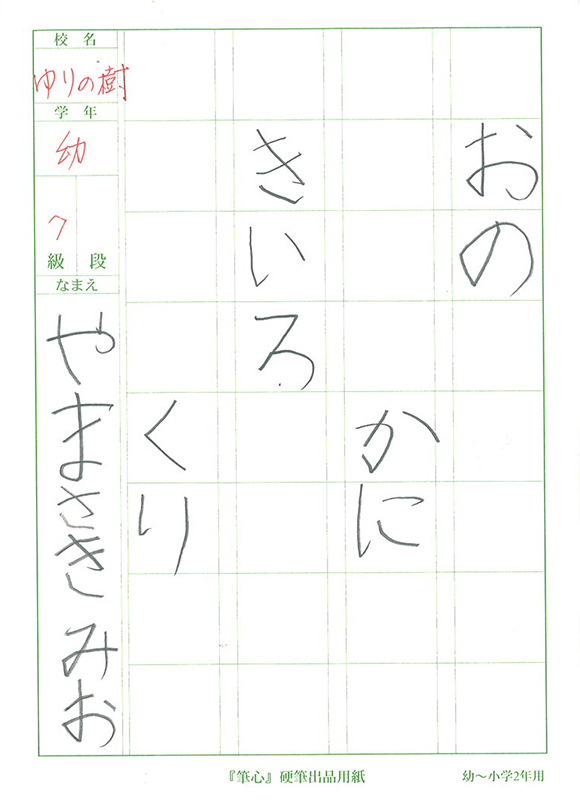 おの
かに
きいろ
くり
校名
ゆりの樹
学年
幼
7
級 段
なまえ
やまさきみお
『筆心』硬筆出品用紙
幼〜小学2年用